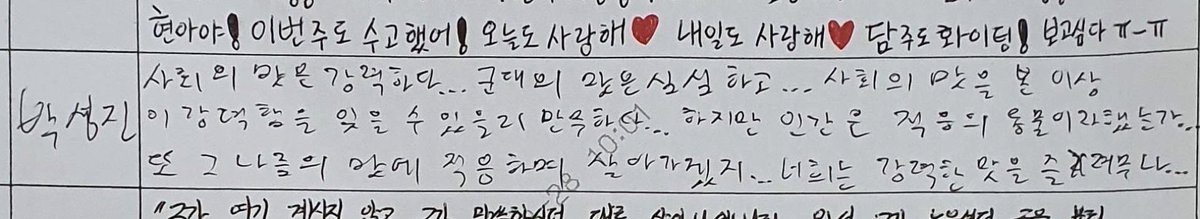 현아야! 이번주도 수고했어! 오늘도 사랑해♥ 내일도 사랑해♥ 담주도 화이팅! 보고싶다 ㅠ-ㅠ
사회의 맛은 강력하다... 군대의 맛은 심심하고... 사회의 맛을 본 이상
박성진 이 강력함을 잊을 수 있을리 만무하다... 하지만 인간은 적응의 동물이라했는가..
또 그 나름의 맛에 적응하며 살아가겠지... 너희는 강력한 맛을 즐겨무다...
28 10:01
"주가 여기 계시지 않고